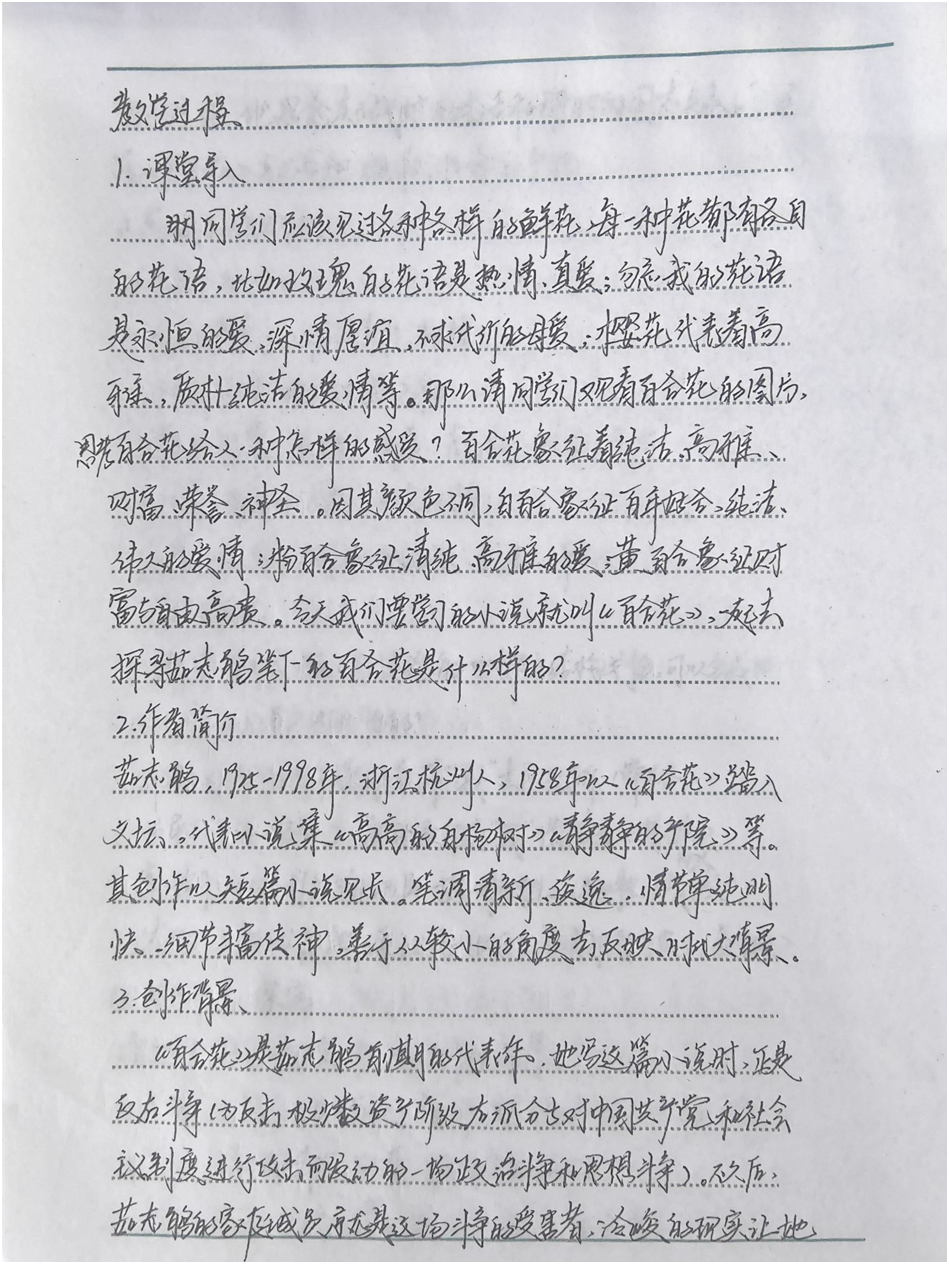 教学过程
1.课堂导入
同学们应该见过各种各样的鲜花,每一种花都有各自
的花语,比如玫瑰的花语是热情、真爱;勿忘我的花语
是永恒的爱,深情厚谊,不求代价的母爱;樱花代表着高
雅,质朴纯洁的爱情等。那么请同学们观看百合花的图片,
思考百合花给人一种怎样的感受?百合花象征着纯洁、高雅、
财富、荣誉、神圣。因其颜色不同,白百合象征百年好合、纯洁、
伟大的爱情;粉百合象征清纯、高雅的爱;黄百合象征财
富与自由高贵。今天我们要学习的小说就叫《百合花》,一起去
探寻茹志鹃笔下的百合花是什么样的?
2.作者简介
茹志鹃,1925-1998年,浙江杭州人,1958年以《百合花》踏入
文坛。代表小说集《高高的白杨树》《静静的产院》等。
其创作以短篇小说见长。笔调清新、俊逸,情节单纯明
快、细节丰富传神,善于从较小的角度去反映时代大背景。
3.创作背景
《百合花》是茹志鹃前期的代表作。她写这篇小说时,正是
反右斗争(为反击极少数资产阶级右派分子对中国共产党和社会
主义制度进行攻击而发动的一场政治斗争和思想斗争)。不久后,
茹志鹃的家庭成员就是这场斗争的受害者,冷峻的现实让她